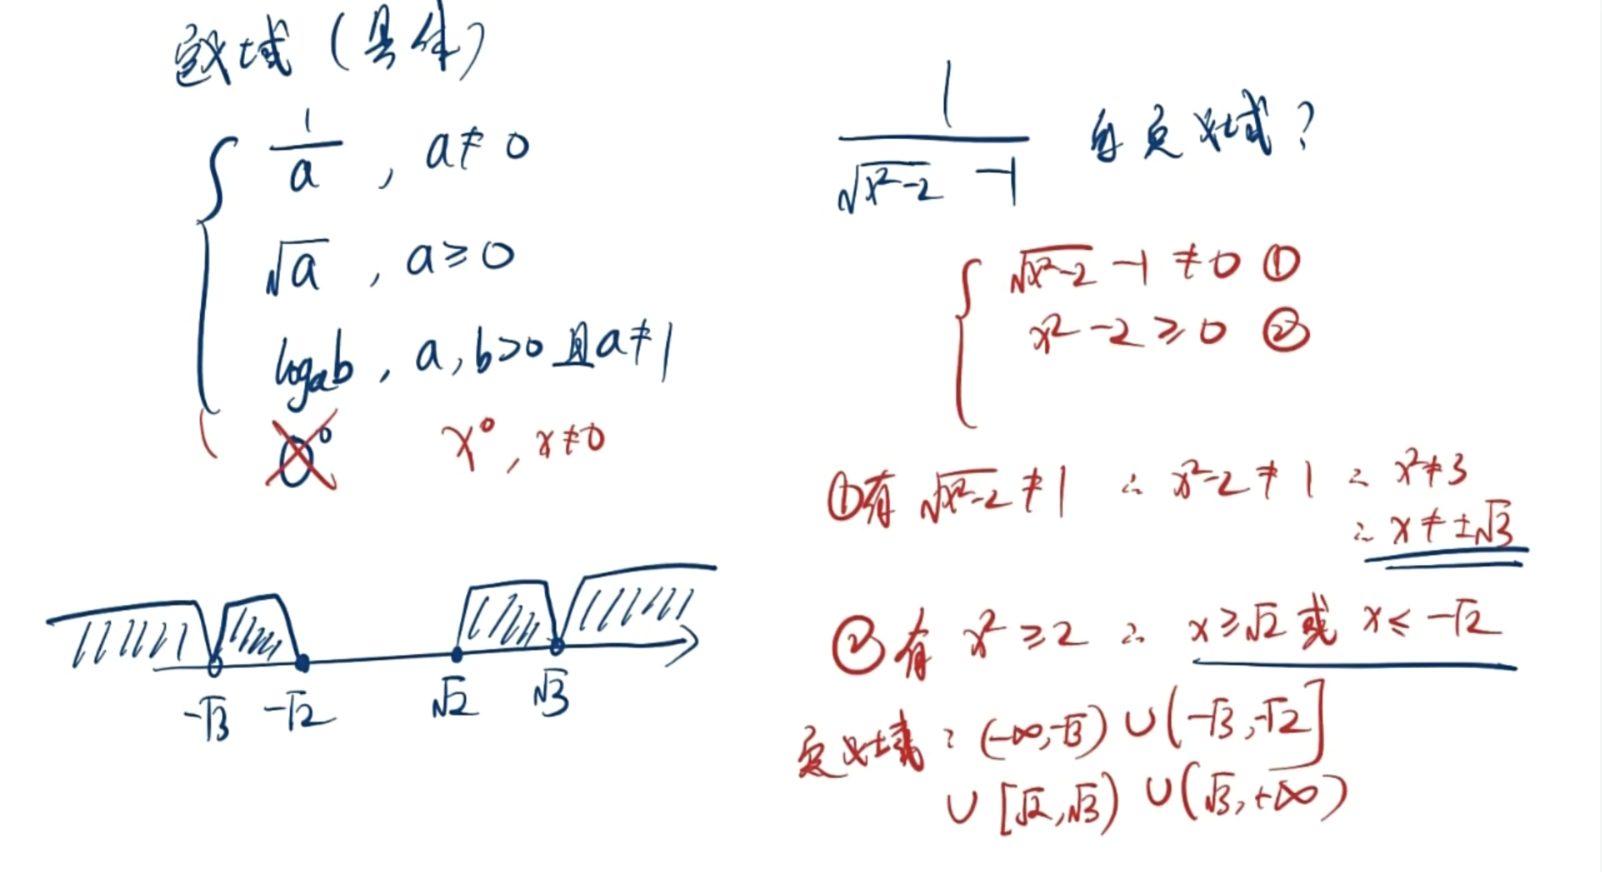 定义域（具体）
1/a , a≠0
√a , a≥0
logₐb , a,b>0且a≠1
0⁰ x⁰, x≠0
-√3 -√2 √2 √3
1/(√(x²-2) -1) 的定义域?
√(x²-2) -1 ≠0 ①
x²-2≥0 ②
①有 √(x²-2)≠1 ∴ x²-2≠1 ∴ x²≠3
∴ x≠±√3
②有 x²≥2 ∴ x≥√2 或 x≤-√2
定义域: (-∞,-√3)∪(-√3,-√2]
∪[√2,√3)∪(√3,+∞)